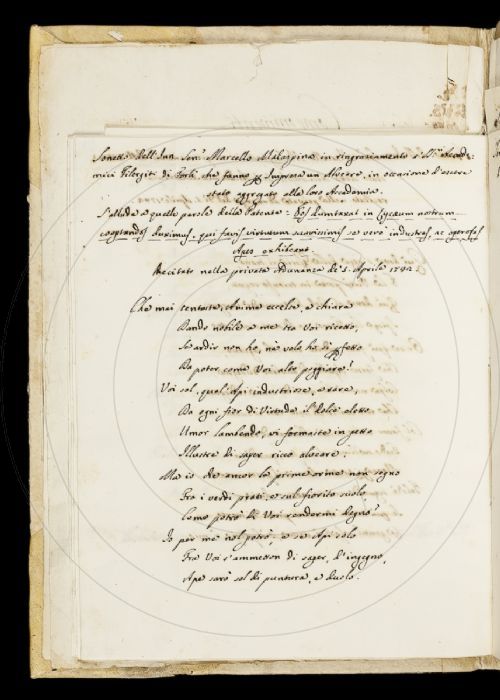 Sonetto dell' Inn. Sen.r Marcello Malaspina in ringraziamento a' SS.ri Accade-
mici Filergiti di Forlì, che fanno p Impresa un Alveare, in occasione d'essere
stato aggregato alla loro Accademia.
S'allude a quelle parole della Patente: Eos dumtaxat in Lyceum nostrum
cooptandos duximus, qui favis virtutum suavissimis se vero industrias, ac operosas
Apes exhibeant
Recitato nella privata Adunanza de' 5. Aprile 1742
Che mai tentaste, Anime eccelse, e chiare
Dando nobile a me tra Voi ricetto,
Se ardir non ho, nè volo ho sì pfetto
Da poter come Voi alto poggiare?
Voi sol, quali Api industriose, e rare,
Da ogni fior di Virtude il dolce eletto
Umor lambendo, vi formaste in petto
Illustre di saper ricco alveare:
Ma io che ancor le prime orme non segno
Fra i verdi prati, e sul fiorito suolo,
Come potrò di Voi rendermi degno?
Io per me nol potrò; e se Api solo
Fra Voi s'ammetton di saper, d'ingegno,
Ape sarò sol di puntura, e duolo.